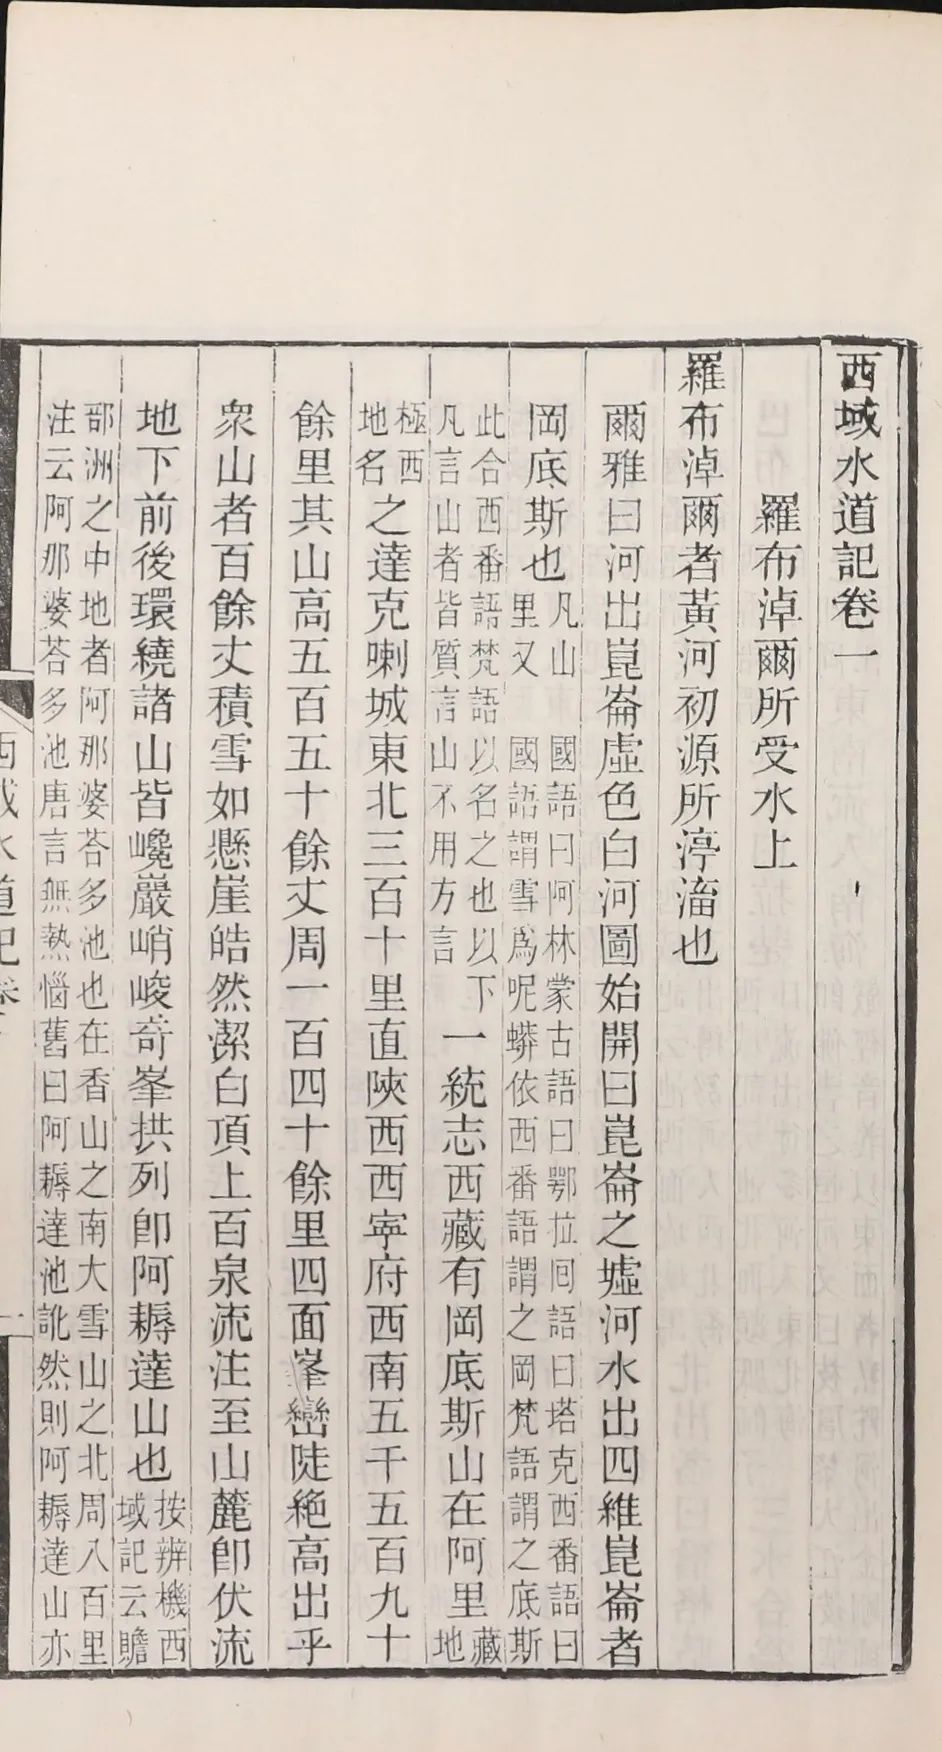 西域水道記卷一
羅布淖爾所受水上
羅布淖爾者黃河初源所渟滀也
爾雅曰河出崑崙虛色白河圖始開曰崑崙之墟河水出四維崑崙者
岡底斯也
凡山國語曰阿林蒙古語曰鄂拉囘語曰塔克西番語曰
里又國語謂雪爲呢蟒依西番語謂之岡梵語謂之底斯
此合西番語梵語以名之也以下
凡言山者皆質言山不用方言
一統志西藏有岡底斯山在阿里
藏
地
極西
地名
之達克喇城東北三百十里直陝西西寧府西南五千五百九十
餘里其山高五百五十餘丈周一百四十餘里四面峯巒陡絕高出乎
衆山者百餘丈積雪如懸崖皓然潔白頂上百泉流注至山麓卽伏流
地下前後環繞諸山皆巉巖峭峻奇峯拱列卽阿耨達山也
按辨機西
域記云贍
部洲之中地者阿那婆荅多池也在香山之南大雪山之北周八百里
注云阿那婆荅多池唐言無熱惱舊曰阿耨達池訛然則阿耨達山亦
西域水道記卷一
一